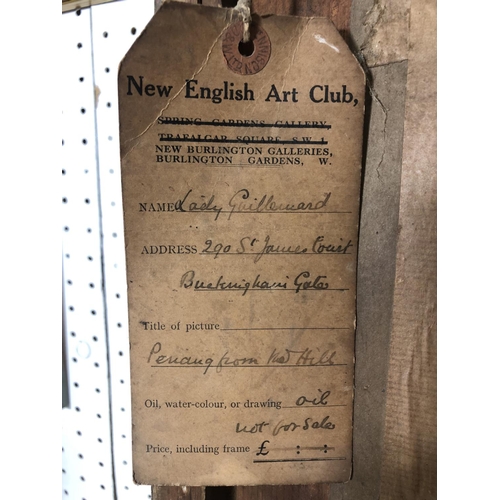 New English Art Club,
SPRING GARDENS GALLERY,
TRAFALGAR SQUARE, S.W.1.
NEW BURLINGTON GALLERIES,
BURLINGTON GARDENS, W.
NAME Lady Guillemard
ADDRESS 290 St James Court
Buckingham Gate
Title of picture
Penang from the Hill
Oil, water-colour, or drawing oil
not for sale
Price, including frame £ : :